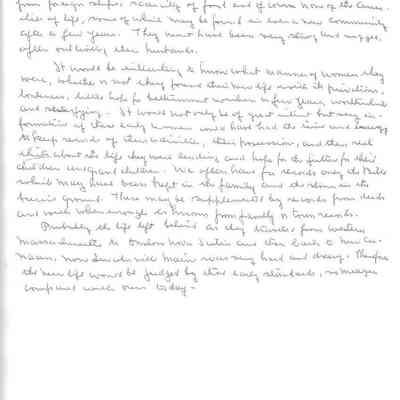 from foreign ships, scarcity of food and of course none of the luxu-
ries of life, some of which may be found in even a new community
after a few years. They must have been very strong and rugged,
often outliving their husbands.
It would be interesting to know what manner of women they
were, whether or not they found their new life with its privations,
loneliness, hope for betterment in a few years, worthwhile
and satisfying. It would not only be of great interest but very in-
formative if these early women could have had the time and energy
to keep records of their activities, their possessions, and their real
about the life they were leading and hope for the future for their
children and grandchildren. We often have for records only the Bible
which may have been kept in the family and the stone in the
burial ground. These may be supplemented by records from deeds
and such when enough is known from family or town records.
Probably the life left behind as they traveled from western
Massachusetts to Nova Scotia and then back to New Ca-
naan, now Lincolnville Maine was very hard and dreary. Therefore
the new life would be judged by their early standards, so meager
compared with ours today.